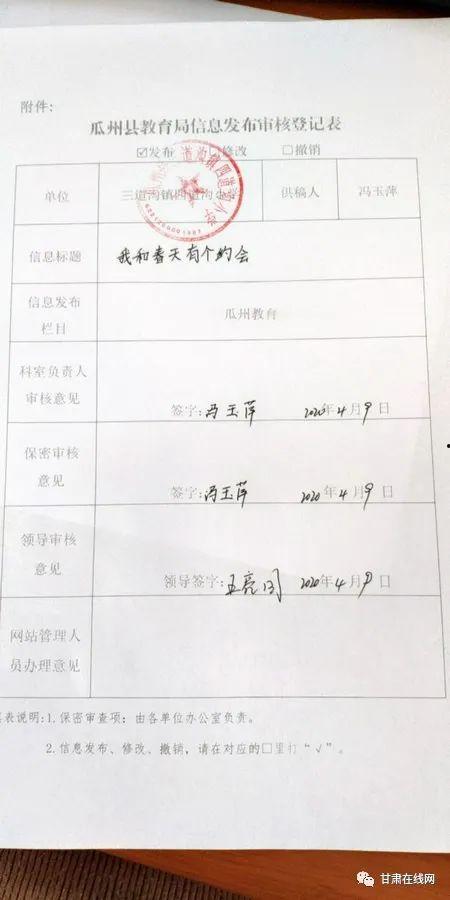 附件:
瓜州县教育局信息发布审核登记表
☑发布 修改 □撤销
单位 三道沟镇四道沟小学 供稿人 冯玉萍
信息标题 我和春天有个约会
信息发布
栏目
瓜州教育
科室负责人
审核意见
签字:冯玉萍 2020年4月9日
保密审核
意见
签字:冯玉萍 2020年4月9日
领导审核
意见
领导签字: 2020年4月9日
网站管理人
员办理意见
表说明:1.保密审查项:由各单位办公室负责。
2.信息发布、修改、撤销,请在对应的□里打“√”。
甘肃在线网